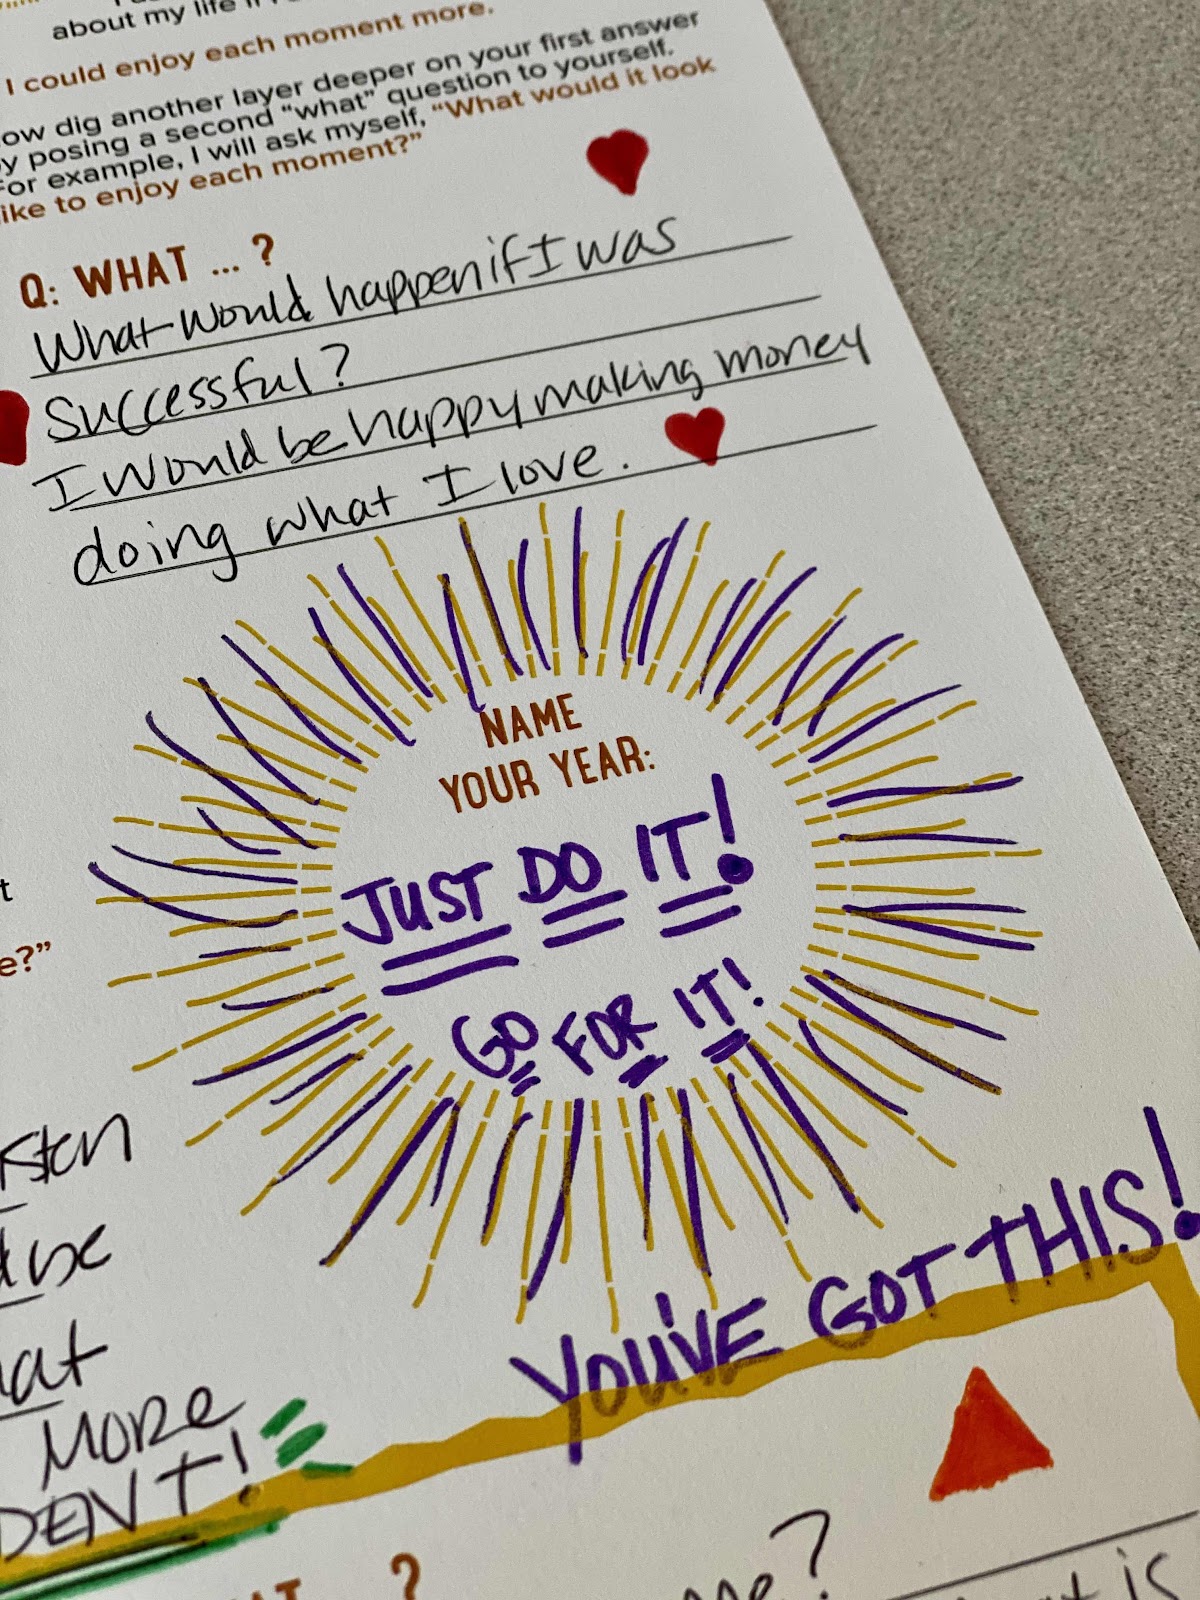 about my life
I could enjoy each moment more.
dig another layer deeper on your first answer
posing a second “what” question to yourself.
For example, I will ask myself, “What would it look
like to enjoy each moment?”
Q: WHAT ... ?
What would happen if I was
Successful?
I would be happy making money
doing what I love.
NAME
YOUR YEAR:
JUST DO IT!
GO FOR IT!
YOU'VE GOT THIS!
MORE
?
is